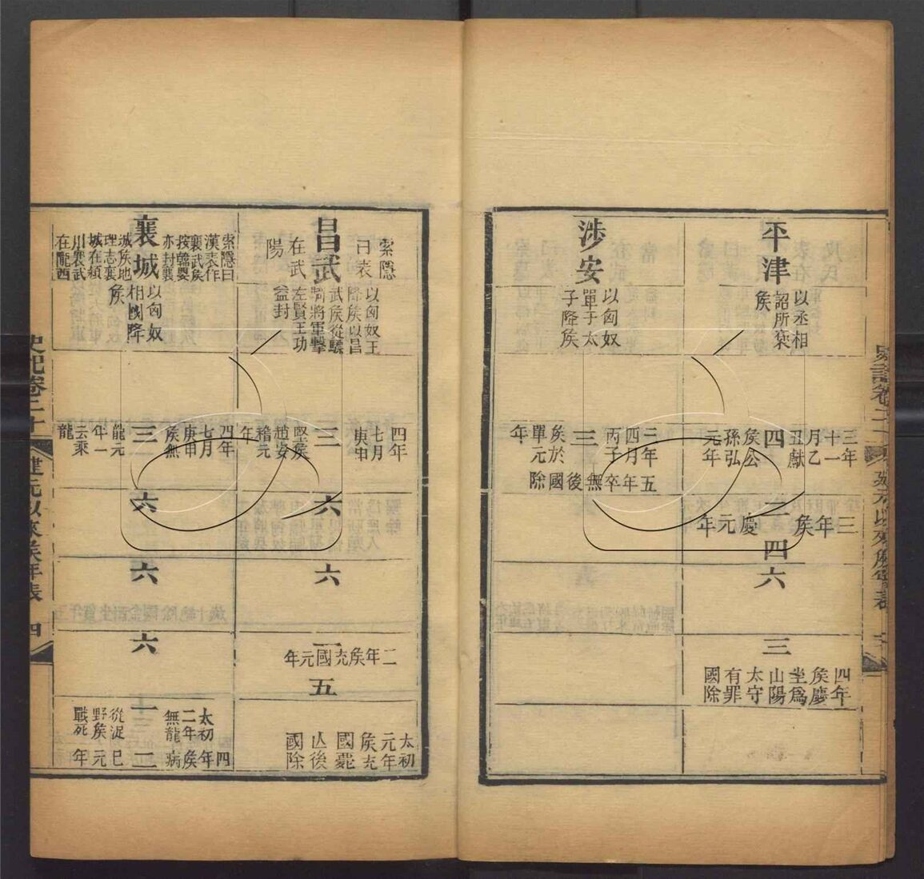 平津
以丞相
詔所褒
侯
三年
十一
月乙
丑獻
侯公
孫弘
元年
四
二
三年侯慶元年
四
六
三
四年
侯慶
坐爲
山陽
太守
有罪
國除
涉安
以匈奴
單于太
子降侯
三年
四月
丙子
侯於
單元
年
三
五年卒無後國除
昌武
索隱
曰表
在武
陽
以匈奴王
降侯以昌
武侯從驃
騎將軍擊
左賢王功
益封
四年
七月
庚申
堅侯
趙安
稽元
年
三
六
六
一
二年侯充國元年
五
太初
元年
侯充
國薨
亡後
國除
襄城
索隱曰
漢表作
襄武侯
按韓嬰
亦封襄
城侯地
理志襄
城在潁
川襄武
在隴西
以匈奴
相國降
侯
四年
七月
庚申
侯無
龍元
年一
云乘
龍
三
六
六
六
一
太初
二年
無龍
從浞
野侯
戰死
二
四年侯病已元年
史記卷二十
建元以來侯年表
四